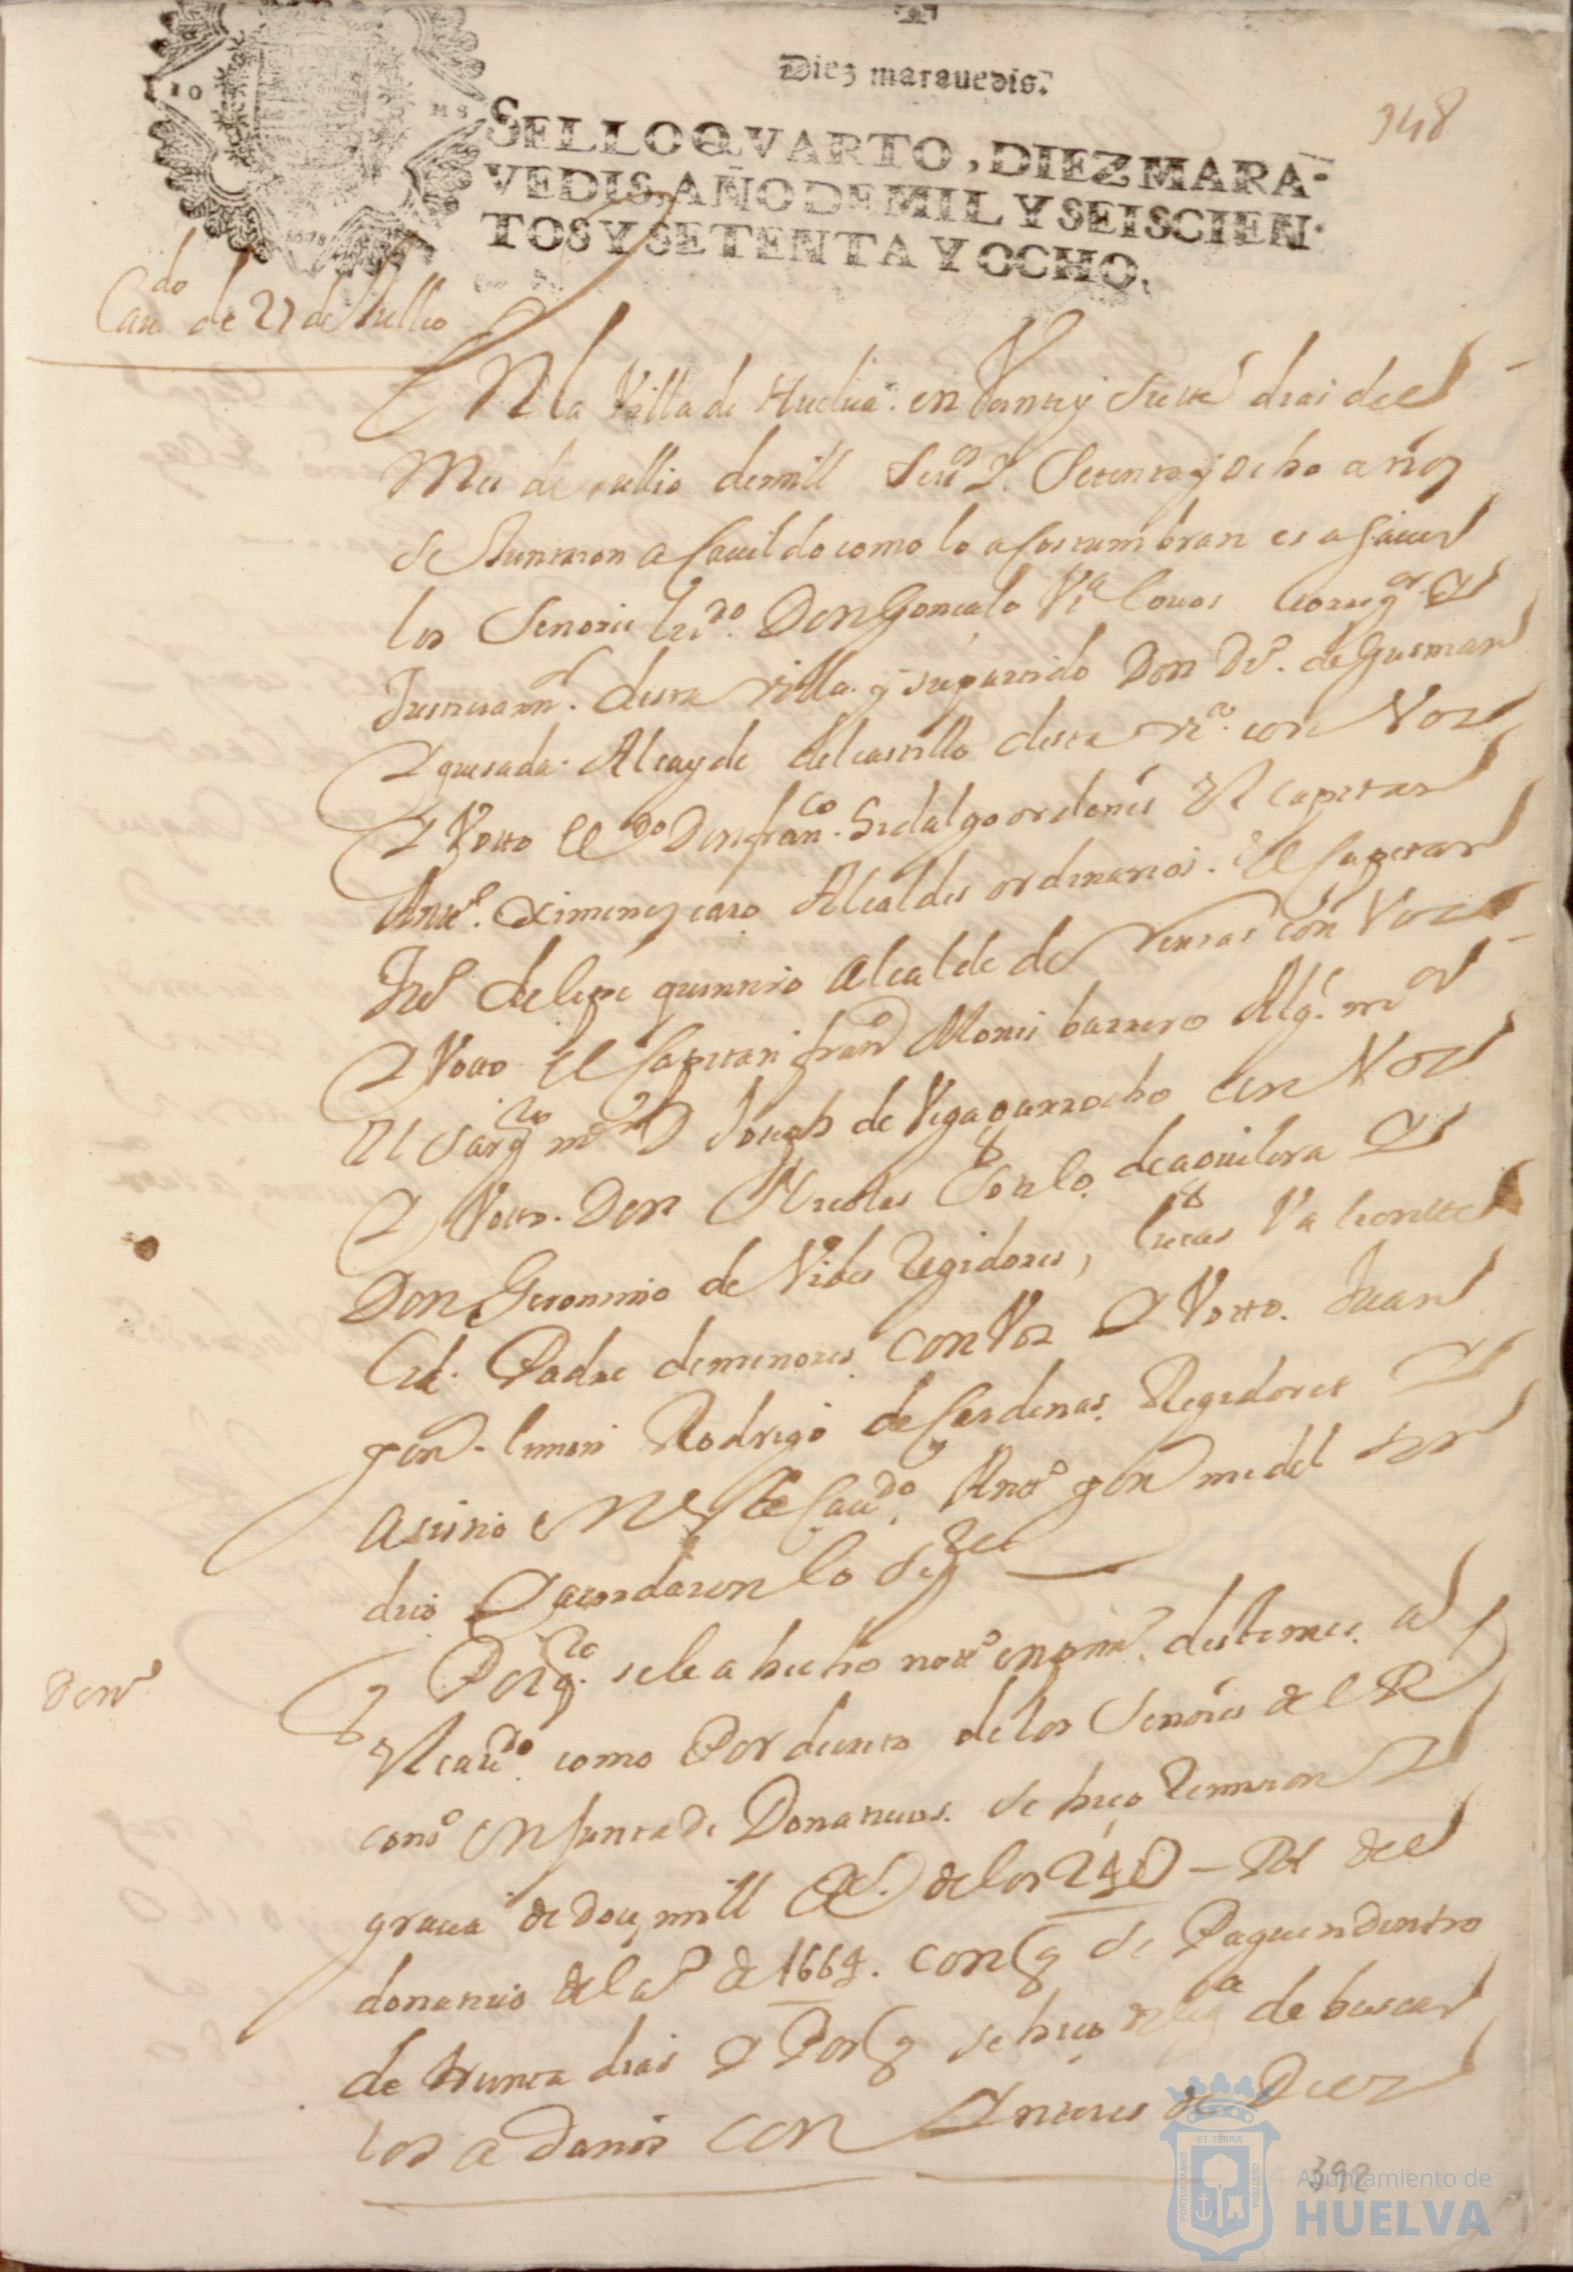 Diez marauedis.
948
SELLO QVARTO, DIEZ MARA-
VEDIS, AÑO DE MIL Y SEISCIEN-
TOS Y SETENTA Y OCHO.
Cau.do de 27 de Jullio
En la Villa de Huelua en Veinte y siette dias del
Mes de Jullio de mill seis.os y Setenta y ocho años
se Juntaron a Cauildo como lo acostumbran es a sauer
los Señores Lz.do Don Gonçalo Vi.a Couos Corregi.or y
Justicia m.or desta villa y su partido Don D.o de Gusman
y quesada Alcayde del castillo desta v.a con Voz
y Votto el D.o Don fran.co hidalgo ordoñes El capitan
Antt.o Ximenez caro Alcaldes ordinarios. El Capitan
Ju.o de lepe quintero Alcalde de Rentas con Voz
y Votto el Capitan fran.co Mones barrero Alg.l m.or
El Sarg.to m.or D Joseph de Vega garrocho con Voz
y Votto. Don Nicolas Gonlo. de aguilera y
Don Geronimo de Vides Regidores, lucas Va
Cid. Padre de menores con Voz y Votto. Juan
gon limon Rodrigo de Cardenas Regidores y
asistio en este Cau.do Antt.o gon midel sin
dico y acordaron lo sig.te
Don.o
Por q.to se le a hecho nott.o en prim.o deste mes al
El cau.do como Por decreto de los Señores del R
cons.o en Junta de Donatiuos se hiço Remision y
gracia de doz mill R.s de los 24 0 - Rs del
donatiuo del a.o de 1664. con q se Paguen dentro
de treinta dias y Por q se hiço de buscar
los a daño con Ynteres de Diez
392
PORTUS MARIS
ET TERRÆ
CUSTODIA
Ayuntamiento de
HUELVA